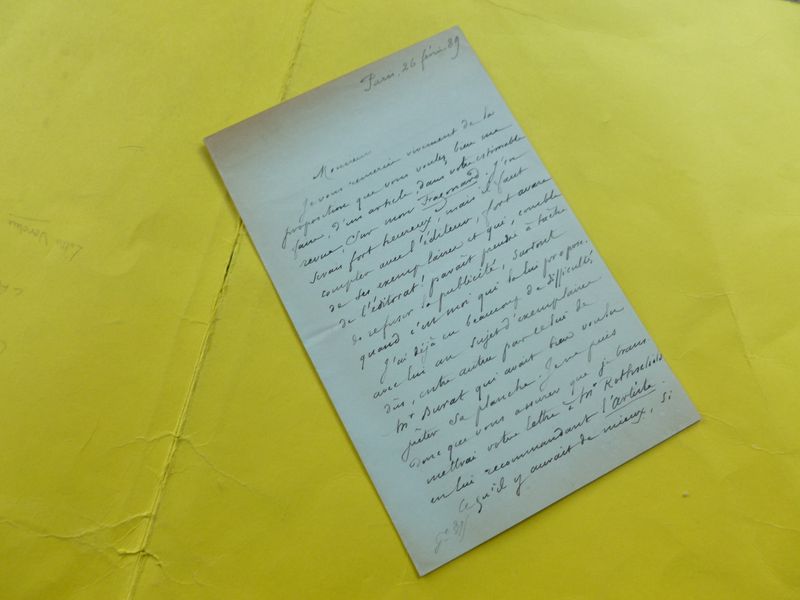 Paris, 26 févr. 89
Monsieur
Je vous remercie vivement de la
proposition que vous voulez bien me
faire, d'un article, dans votre estimable
revue, sur mon Fragonard. J'en
serais fort heureux, mais il faut
compter avec l'éditeur, fort avare
de ses exemplaires et qui, comble
de l'éditorat! paraît prendre à tâche
de refuser la publicité, surtout
quand c'est moi qui la lui propose.
J'ai déjà eu beaucoup de difficultés
avec lui au sujet d'exemplaires
dûs, entre autres par celui de
Mr Burat qui avait bien voulu
prêter sa planche. Je ne puis
donc que vous assurer que je trans-
mettrai votre lettre à Mr Rothschild
en lui recommandant l'Artiste.
Ce qu'il y aurait de mieux, si